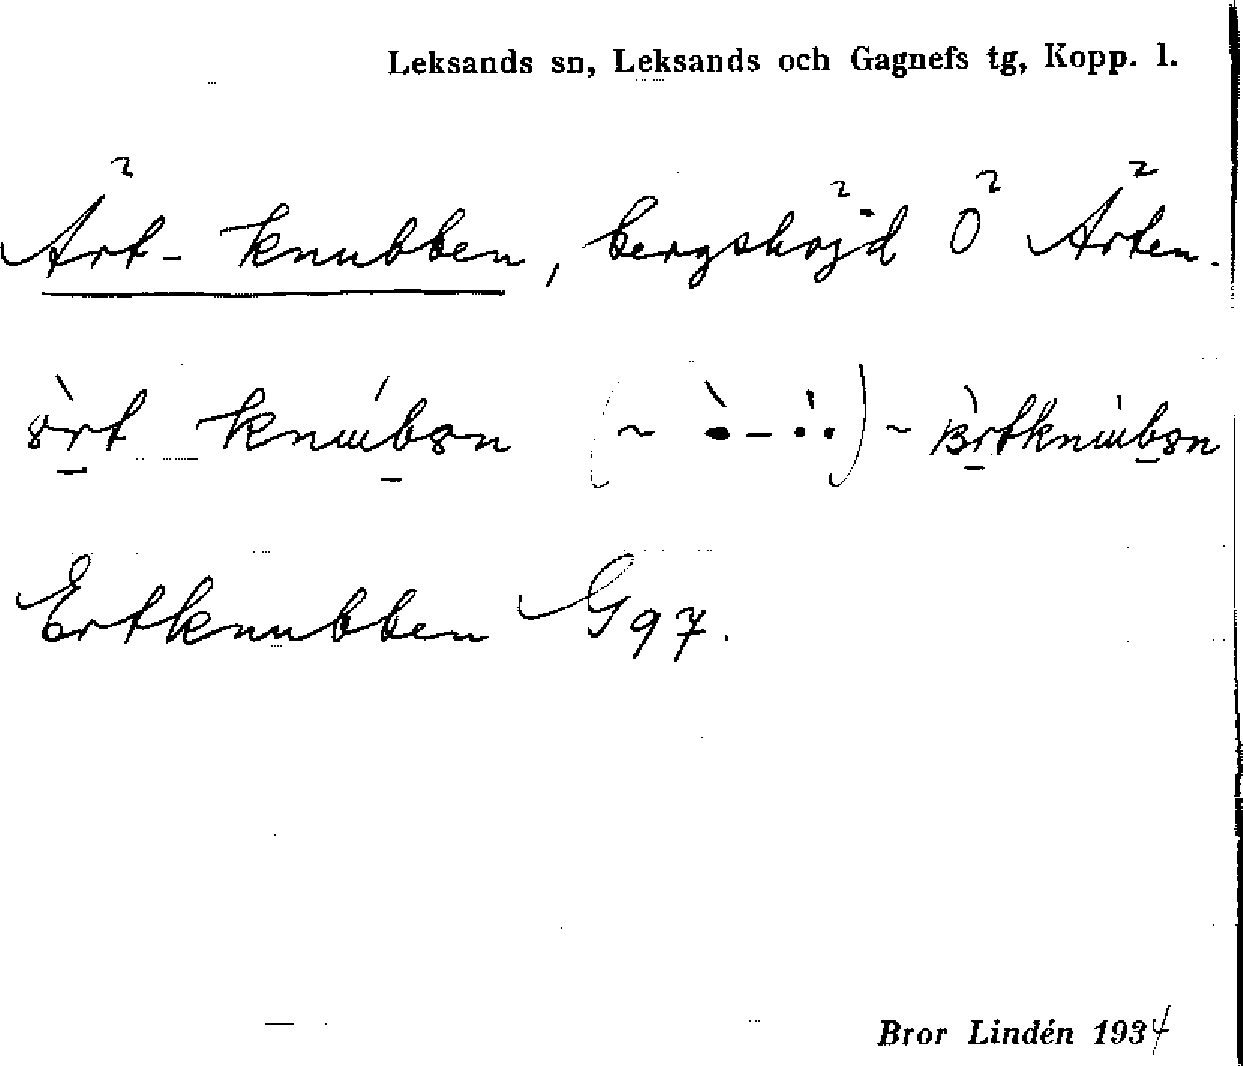 Leksands sn, Leksands och Gagnefs tg, Kopp. l.
Ärt-knubben, bergshöjd Ö Ärten.
Ertknubben G 97.
Bror Lindén 1934